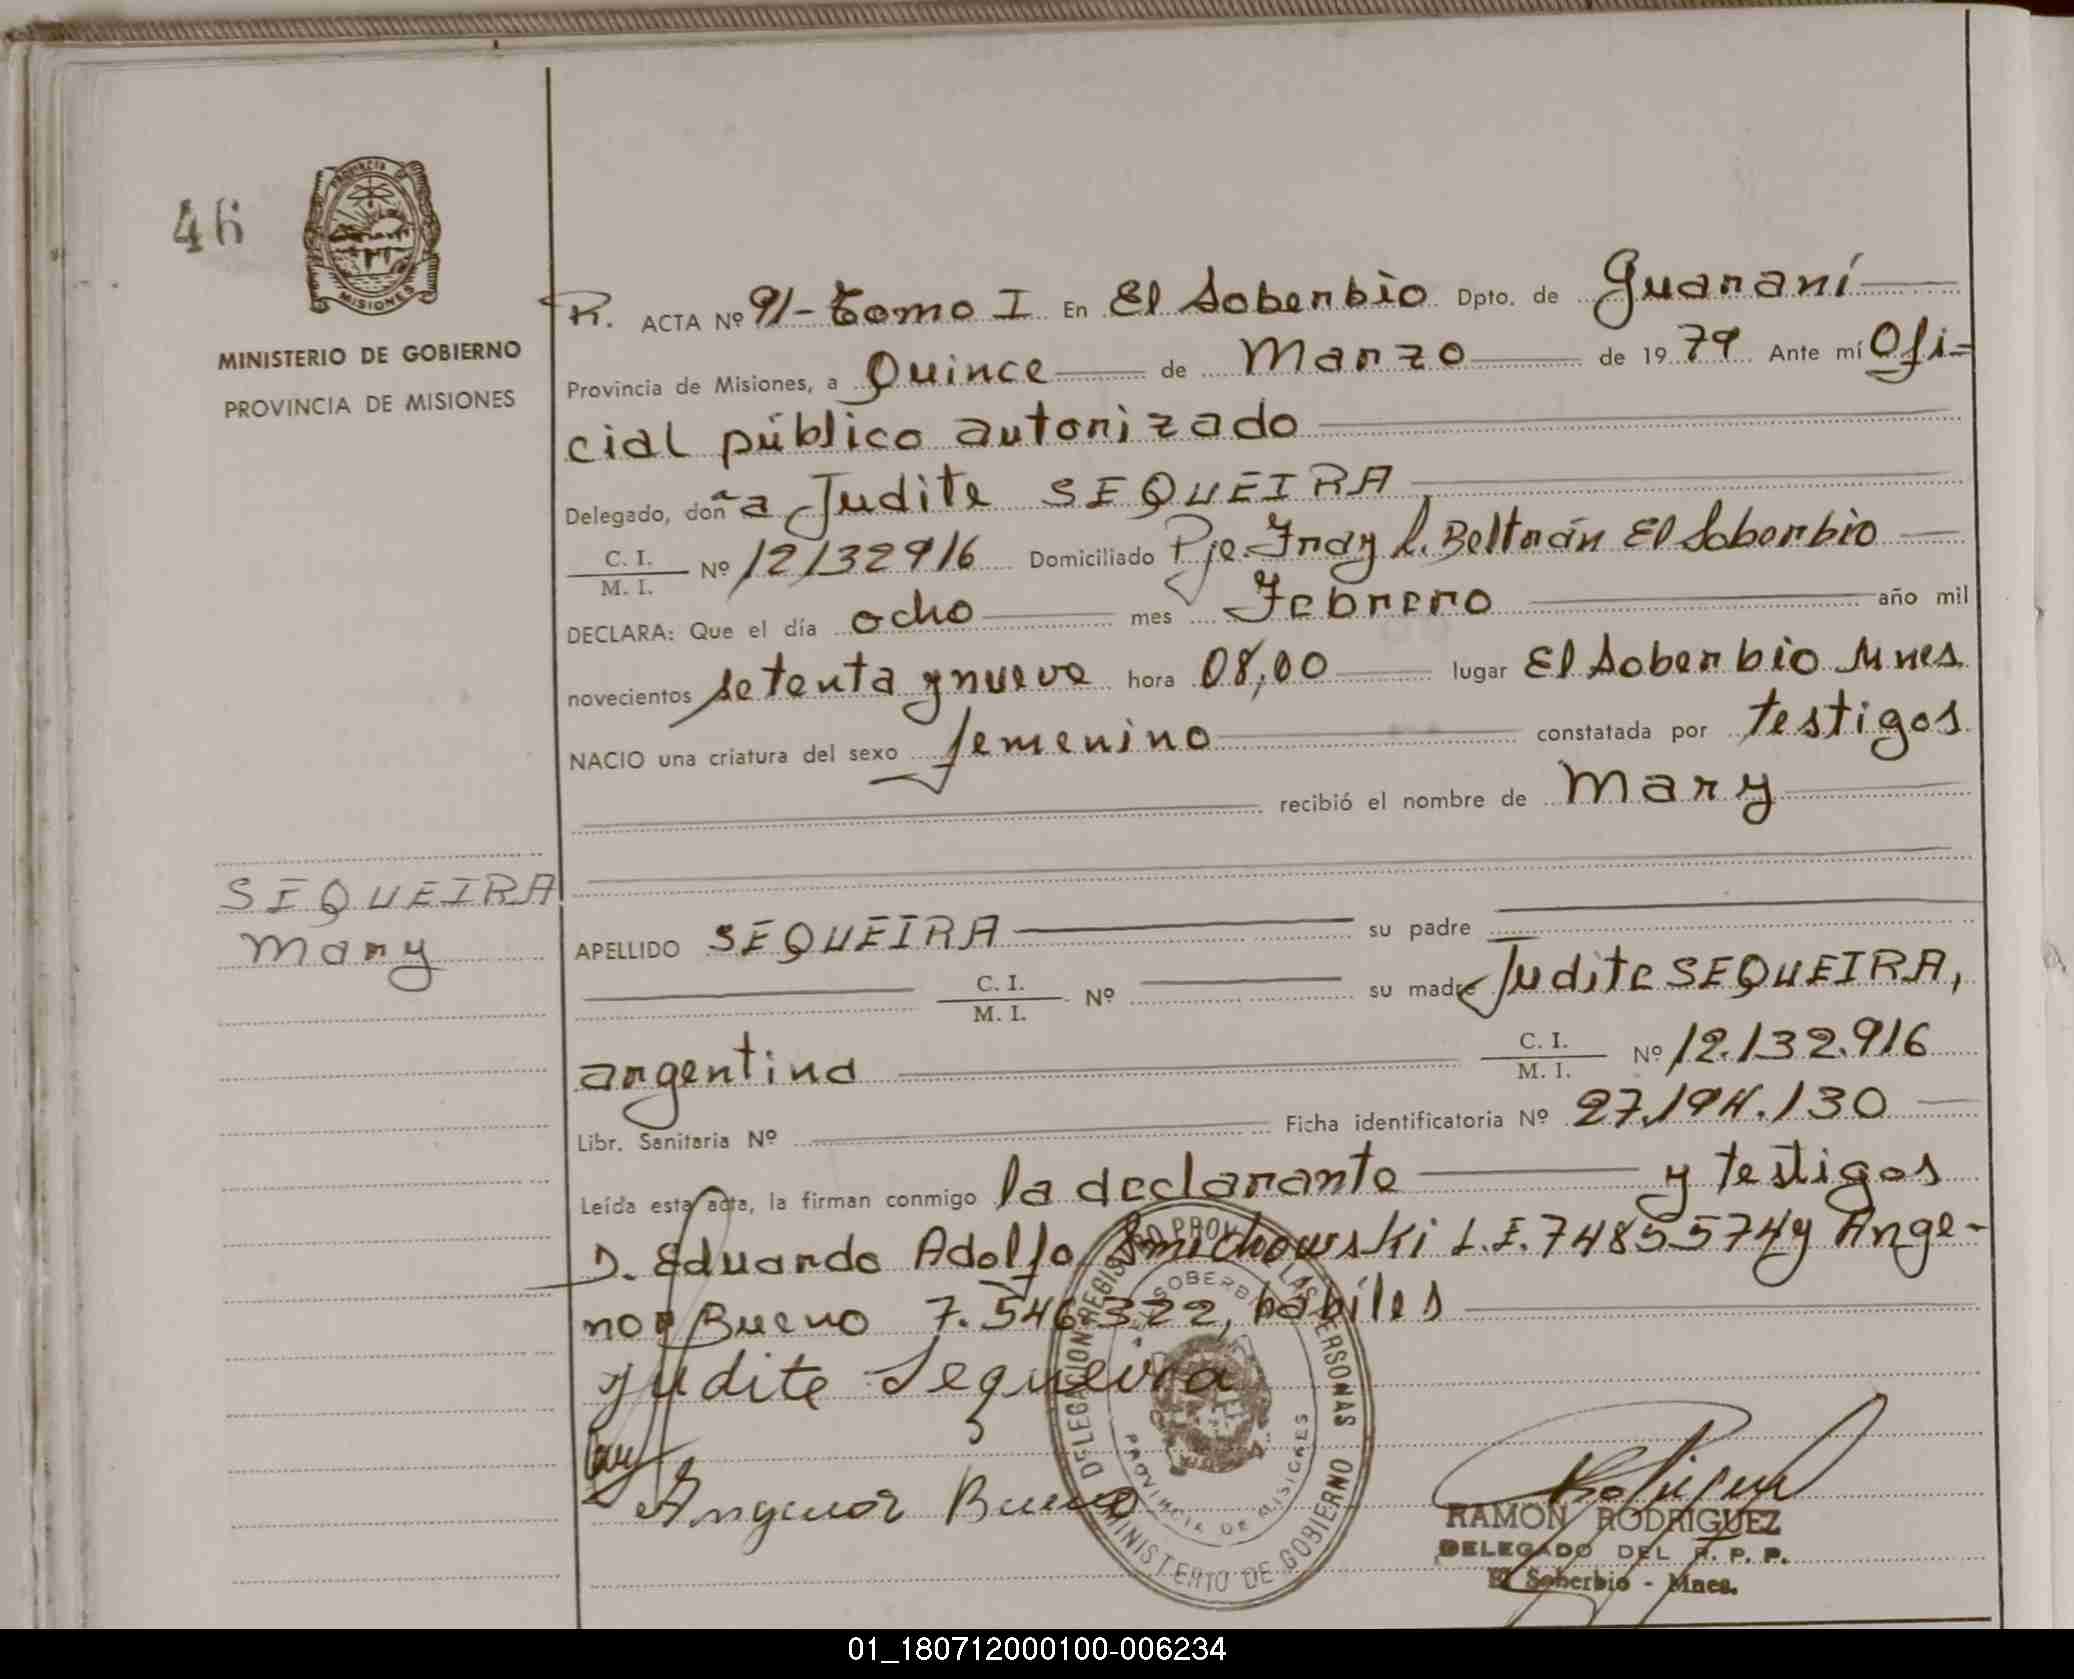 46
PROVINCIA DE
MISIONES
MINISTERIO DE GOBIERNO
PROVINCIA DE MISIONES
R. ACTA Nº 91- Tomo I En El Soberbio Dpto. de Guaraní
Provincia de Misiones, a Quince de Marzo de 1979 Ante mí Ofi=
cial público autorizado
Delegado, doña Judite SEQUEIRA
C. I.
M. I. Nº 12132916 Domiciliado Pje. Fray L. Beltrán El Soberbio
DECLARA: Que el día ocho mes Febrero año mil
novecientos setenta y nueve hora 08,00 lugar El Soberbio Mnes.
NACIO una criatura del sexo femenino constatada por testigos
recibió el nombre de Mary
SEQUEIRA
Mary
APELLIDO SEQUEIRA su padre
C. I.
M. I. Nº su madre Judite SEQUEIRA,
argentina C. I.
M. I. Nº 12.132.916
Libr. Sanitaria Nº Ficha identificatoria Nº 27.194.130
Leída esta acta, la firman conmigo la declarante y testigos
D. Eduardo Adolfo Smichowski L.E. 7485574 y Ange-
nor Bueno 7.546.322, hábiles
Judite Sequeira
Angenor Bueno
DELEGACION REGISTRO PROV. LAS PERSONAS
EL SOBERBIO
PROVINCIA DE MISIONES
MINISTERIO DE GOBIERNO
RAMON RODRIGUEZ
DELEGADO DEL R. P. P.
El Soberbio - Mnes.
01_180712000100-006234